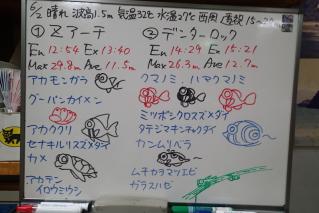 6/2 晴れ 波高1.5m 気温32℃ 水温27℃ 西風 透視15~20
① Zアーチ
En 12:54 Ex 13:40
Max 29.8m Ave 11.5m
アカモンガラ
グーバンカイメン
アカククリ
セナキルリスズメダイ
カメ
アカテン
イロウミウシ
② デンターロック
En 14:29 Ex 15:21
Max 26.3m Ave 12.7m
クマノミ、ハマクマノミ
ミツボシクロスズメダイ
タテジマキンチャクダイ
カンムリベラ
ムチカラマツエビ
ガラスハゼ